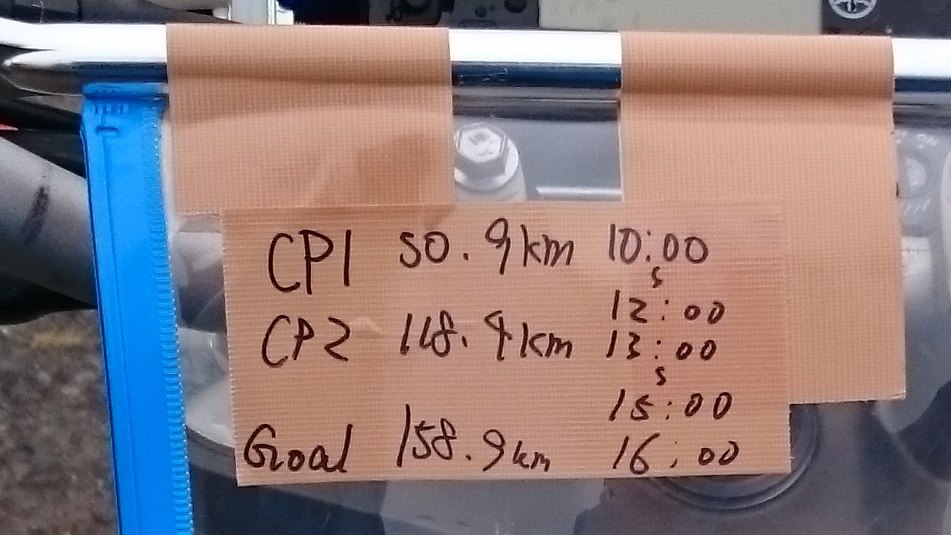 CP1 50.9km 10:00
s
12:00
CP2 118.9km 13:00
s
15:00
Goal 158.9km 16:00